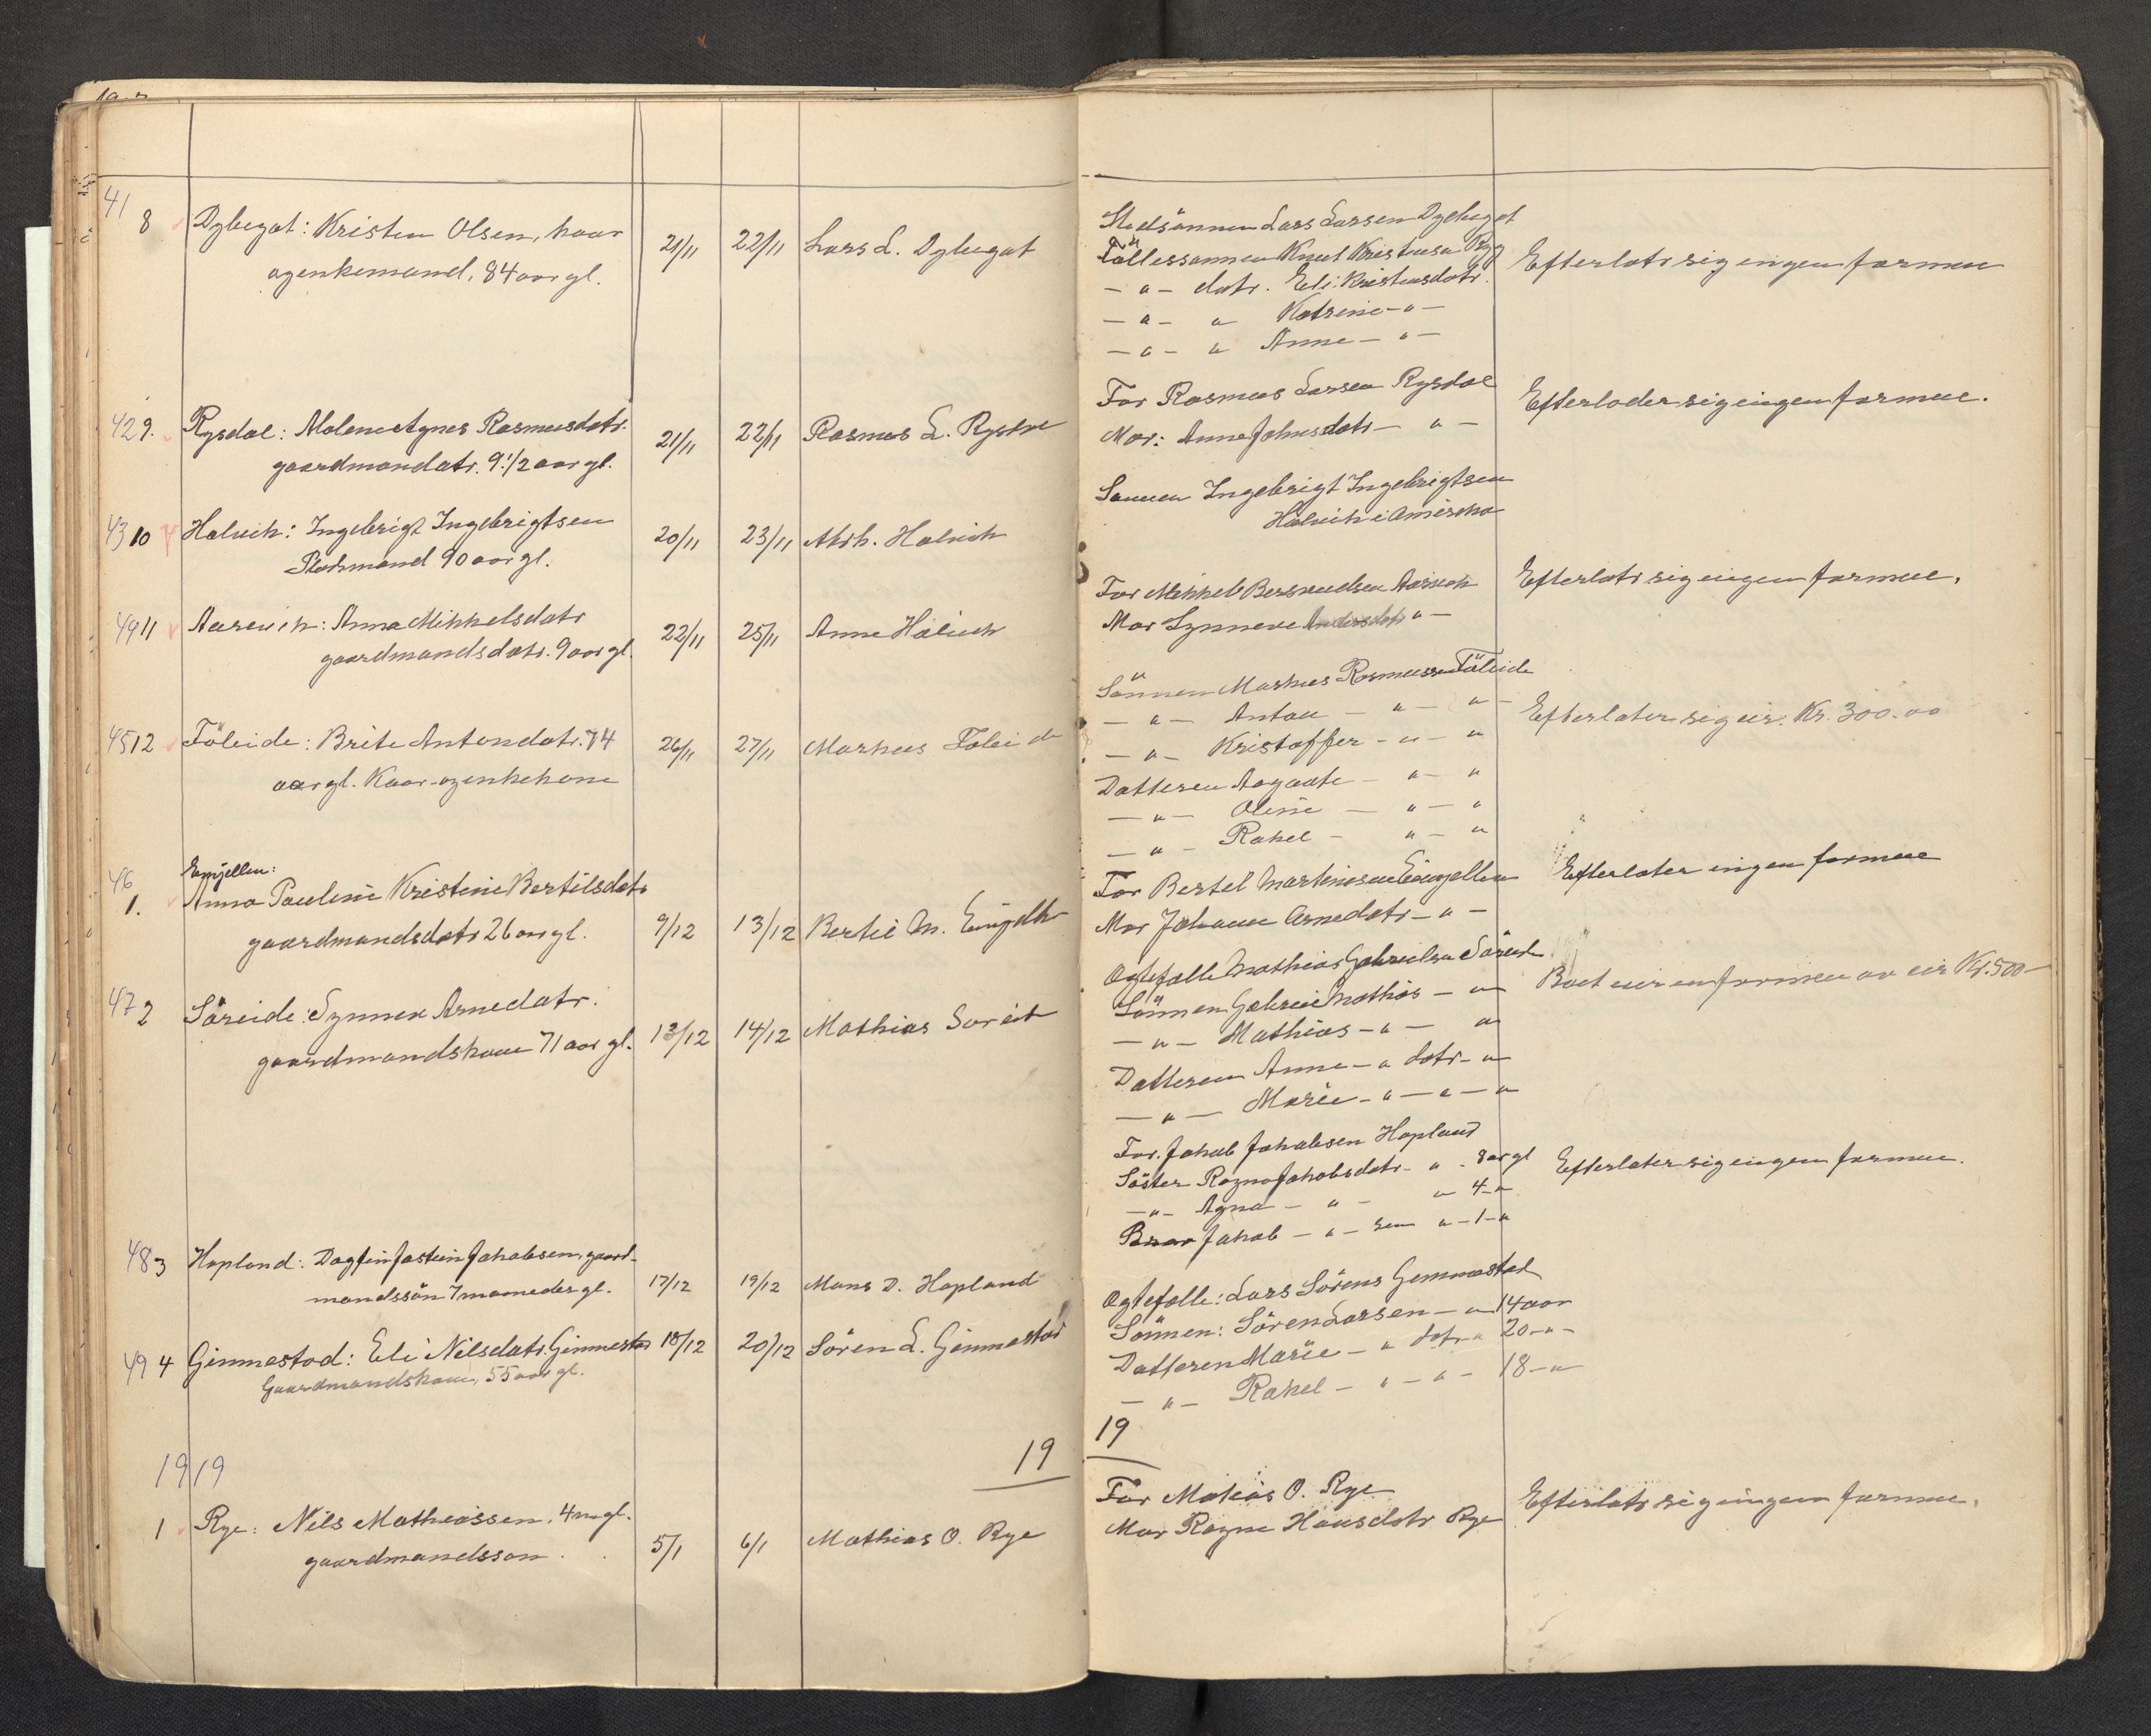 41
8 Dybegot: Kristen Olsen, kaar
og enkemand, 84 aar gl.
21/11 22/11 Lars L. Dybegot
429. Rysdal: Malene Agnes Rasmusdatr.
gaardmandatr. 9 1/2 aar gl.
21/11 22/11 Rasmus L. Rysdal
43 10 Halvik: Ingebrigt Ingebrigtsen
Pladsmand 90 aar gl.
20/11 23/11 Halvik
11 Aarevik: Anna Mikkelsdatr
gaardmandsdatr. 9 aar gl.
22/11 25/11 Anne Halvik
45 12 Föleide: Brite Antondatr. 74
aar gl. Kaar og enkekone
26/11 27/11 Markus Föleide
46
1. Emjellen:
Anna Pauline Kristine Bertilsdatr
gaardmandsdatr 26 aar gl.
9/12 13/12 Bertel M.
47 2 Söreide: Synneve Arnedatr.
gaardmandskone 71 aar gl.
13/12 14/12 Mathias Soreit
48 3 Hopland: Dagfin Jostein Jakobsen, gaard-
mandssön 7 maaneder gl.
17/12 19/12 Mons D. Hopland
49 4 Gimmestad: Eli Nilsdatr. Gimmestad
Gaardmandskone, 55 aar gl.
18/12 20/12 Sören L. Gimmestad
19
1919
1 Rye: Nils Mathiassen, 4 m gl.
gaardmandsson.
5/1 6/1 Mathias O. Rye
Stedsönnen Lars Larsen Dybegot
Fællessönnen Knut Kristensen Ryg
— " — datr. Eli Kristensdatr.
— " — " Katrine — " —
— " — " Anne — " —
Efterlater sig ingen formue
Far Rasmus Larsen Rysdal
Mor: Anne Johnsdatr — " —
Efterlader sig ingen formue.
Sönnen Ingebrigt Ingebrigtsen
Halvik i Amerika
Far Mikkel Bersvendsen Aarevik
Mor Synneve Andersdatr " —
Efterlatr sig ingen formue.
Sönnen Markus Rasmussen Föleide
— " — Anton — " — " —
— " — Kristoffer — " — "
Datteren Aagaate — " — "
— " — Oline — " — "
— " — Rakel — " — "
Efterlater sig eir. Kr. 300.00
Far Bertel Martinusen
Mor Johanne Arnedatr — " —
Efterlater ingen formue
Ogtefælle Mathias Gabrielsen Söreide
Sönnen Gabriel Mathias — "
— " — Mathias — " — "
Datteren Anne — " datr — "
— " — Marie — " — " — "
Boet eier en formue av cir Kr. 500 —
Far. Jakob Jakobsen Hopland
Söster Ragna Jakobsdatr — " . 8 aar gl
— " — Agna — " — " 4 — "
Broer Jakob — " — sen " — 1 — "
Efterlater sig ingen formue.
Ogtefælle: Lars Sörens Gimmestad
Sönnen: Sören Larsen — " 14 aar
Datteren Marie — " datr " 20 — " —
— " — Rakel — " — " — 18 — "
19
Far Matias O. Rye
Mor Ragna Hansdatr Rye
Efterlatr sig ingen formue.